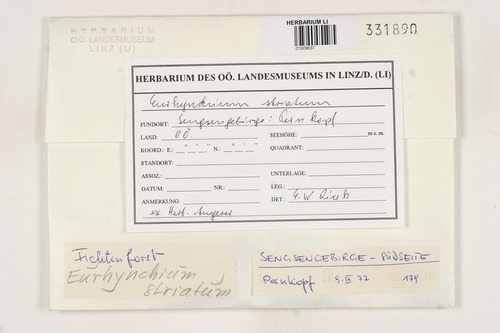 HERBARIUM
O.Ö. LANDESMUSEUM
LINZ (LI)
HERBARIUM LI
01009637
331890
HERBARIUM DES OÖ. LANDESMUSEUMS IN LINZ/D. (LI)
Eurhynchium striatum
FUNDORT: Sengsengebirge: Pernkopf
LAND: OÖ. SEEHÖHE: m s. m.
KOORD.: E.: ° ' '' N.: ° ' '' QUADRANT:
STANDORT:
ASSOZ.: UNTERLAGE:
DATUM: NR.: LEG.:
ANMERKUNG: DET.: E.W. Ricek
ex Herb. Angerer
Fichtenforst
Eurhynchium
striatum
SENGSENGEBIRGE - SÜDSEITE
Pernkopf 9.IX 77 179